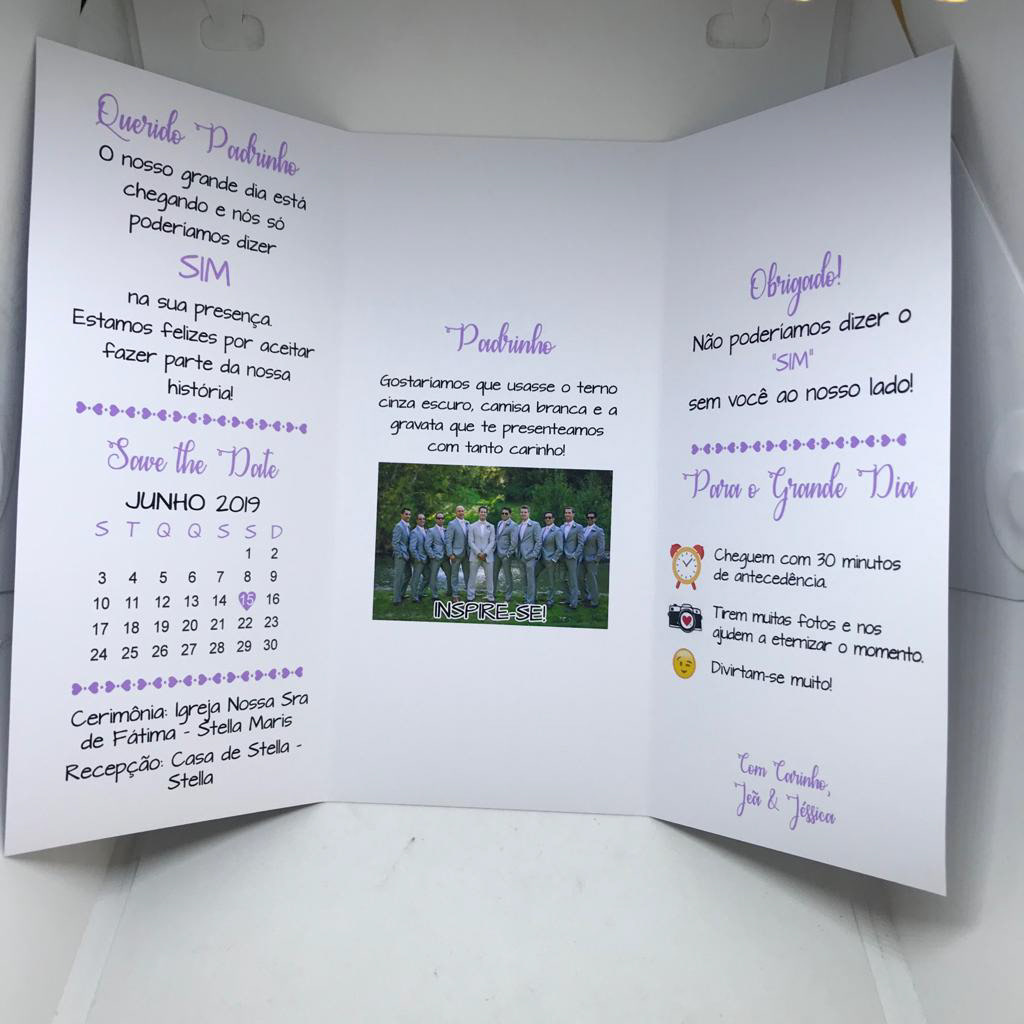 Querido Padrinho
O nosso grande dia está
chegando e nós só
poderíamos dizer
SIM
na sua presença.
Estamos felizes por aceitar
fazer parte da nossa
história!
Save the Date
JUNHO 2019
S T Q Q S S D
1 2
3 4 5 6 7 8 9
10 11 12 13 14 15 16
17 18 19 20 21 22 23
24 25 26 27 28 29 30
Cerimônia: Igreja Nossa Sra
de Fátima - Stella Maris
Recepção: Casa de Stella -
Stella
Padrinho
Gostaríamos que usasse o terno
cinza escuro, camisa branca e a
gravata que te presenteamos
com tanto carinho!
INSPIRE-SE!
Obrigado!
Não poderíamos dizer o
"SIM"
sem você ao nosso lado!
Para o Grande Dia
Cheguem com 30 minutos
de antecedência.
Tirem muitas fotos e nos
ajudem a eternizar o momento.
Divirtam-se muito!
Com Carinho,
Jeã & Jéssica